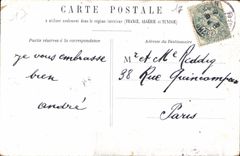 CARTE POSTALE
à utiliser seulement dans le régime intérieur (FRANCE, ALGÉRIE et TUNISIE)
Partie réservée à la correspondance
Adresse du Destinataire
je vous embrasse
bien
andré
Mr et Me Reddig
98 Rue Quincampoix
Paris